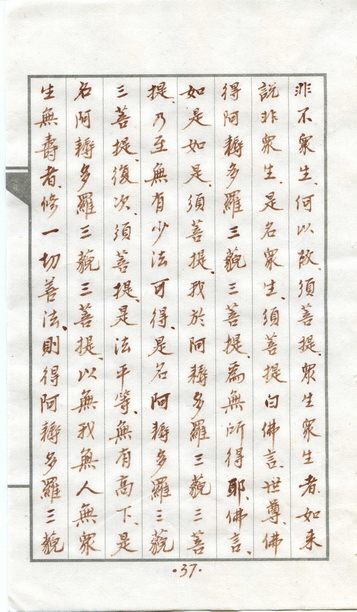 非不眾生、何以故、須菩提、眾生眾生者、如來
說非眾生、是名眾生、須菩提白佛言、世尊、佛
得阿耨多羅三藐三菩提、為無所得耶、佛言、
如是如是、須菩提、我於阿耨多羅三藐三菩
提、乃至無有少法可得、是名阿耨多羅三藐
三菩提、復次、須菩提、是法平等、無有高下、是
名阿耨多羅三藐三菩提、以無我無人無眾
生無壽者、修一切善法、則得阿耨多羅三藐
·37·